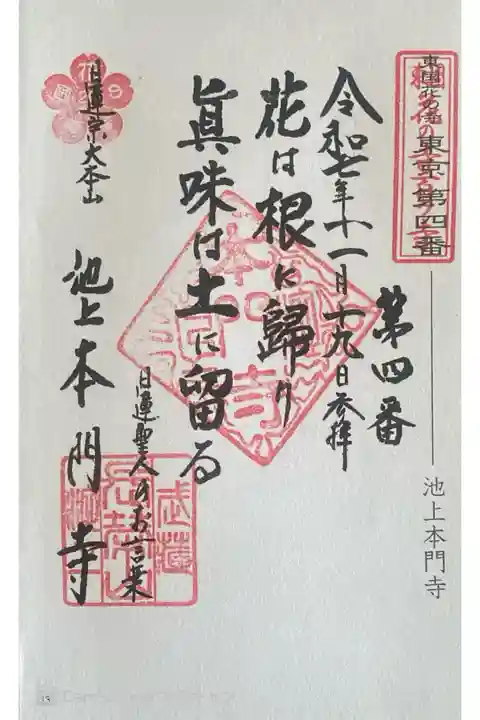 東国花の寺
東京第四番
池上本門寺
第四番
令和七年十一月十九日参拝
花は根に歸り
眞味は土に留る
日蓮聖人のお言葉
日蓮宗大本山
池上本門寺